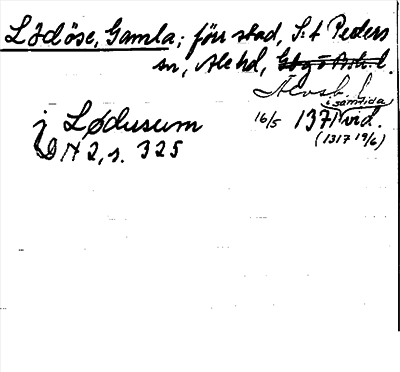 Lödöse, Gamla; förr stad, S:t Peders
sn, Ale hd,
Älvsb. l.
j Lødusum 16/5 1371 i samtida vid.
DN 2, s. 325 (1317 19/6)